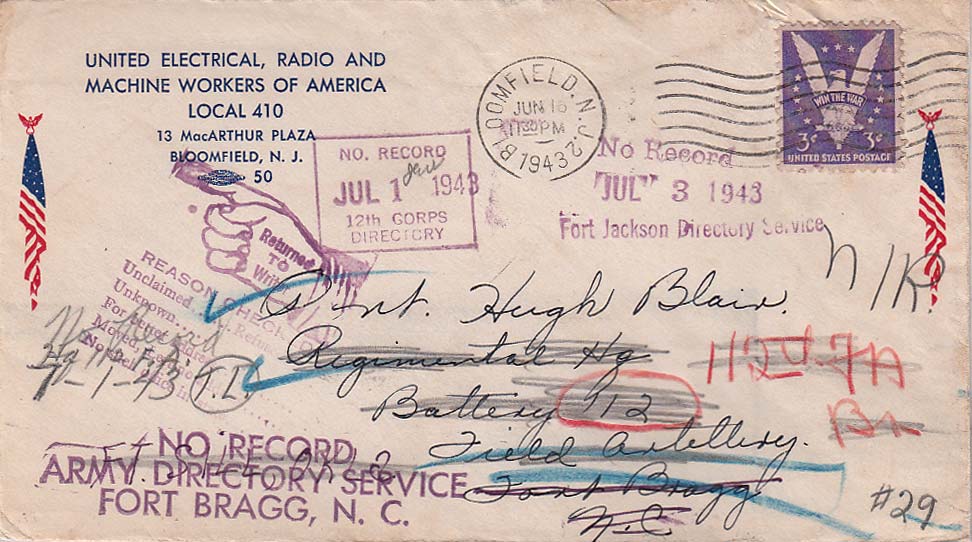 UNITED ELECTRICAL, RADIO AND
MACHINE WORKERS OF AMERICA
LOCAL 410
13 MacARTHUR PLAZA
BLOOMFIELD, N. J.
50
BLOOMFIELD, N.J. 2
JUN 16
11 30 PM
1943
WIN THE WAR
3¢ 3¢
UNITED STATES POSTAGE
NO. RECORD
JUL 1 1943
12th CORPS
DIRECTORY
No Record
JUL 3 1943
Fort Jackson Directory Service
Returned
TO
Writer
REASON CHECKED
Unclaimed Refused
Unknown
For Better Address
Moved, Left
No Such Office
No Record
7-1-43 T.L.
N/R.
Hugh Blair.
Regimental Hq
Battery 112
Field Artillery.
Fort Bragg
N.C
112th FA
Bn
#29
NO RECORD
ARMY DIRECTORY SERVICE
FORT BRAGG, N. C.